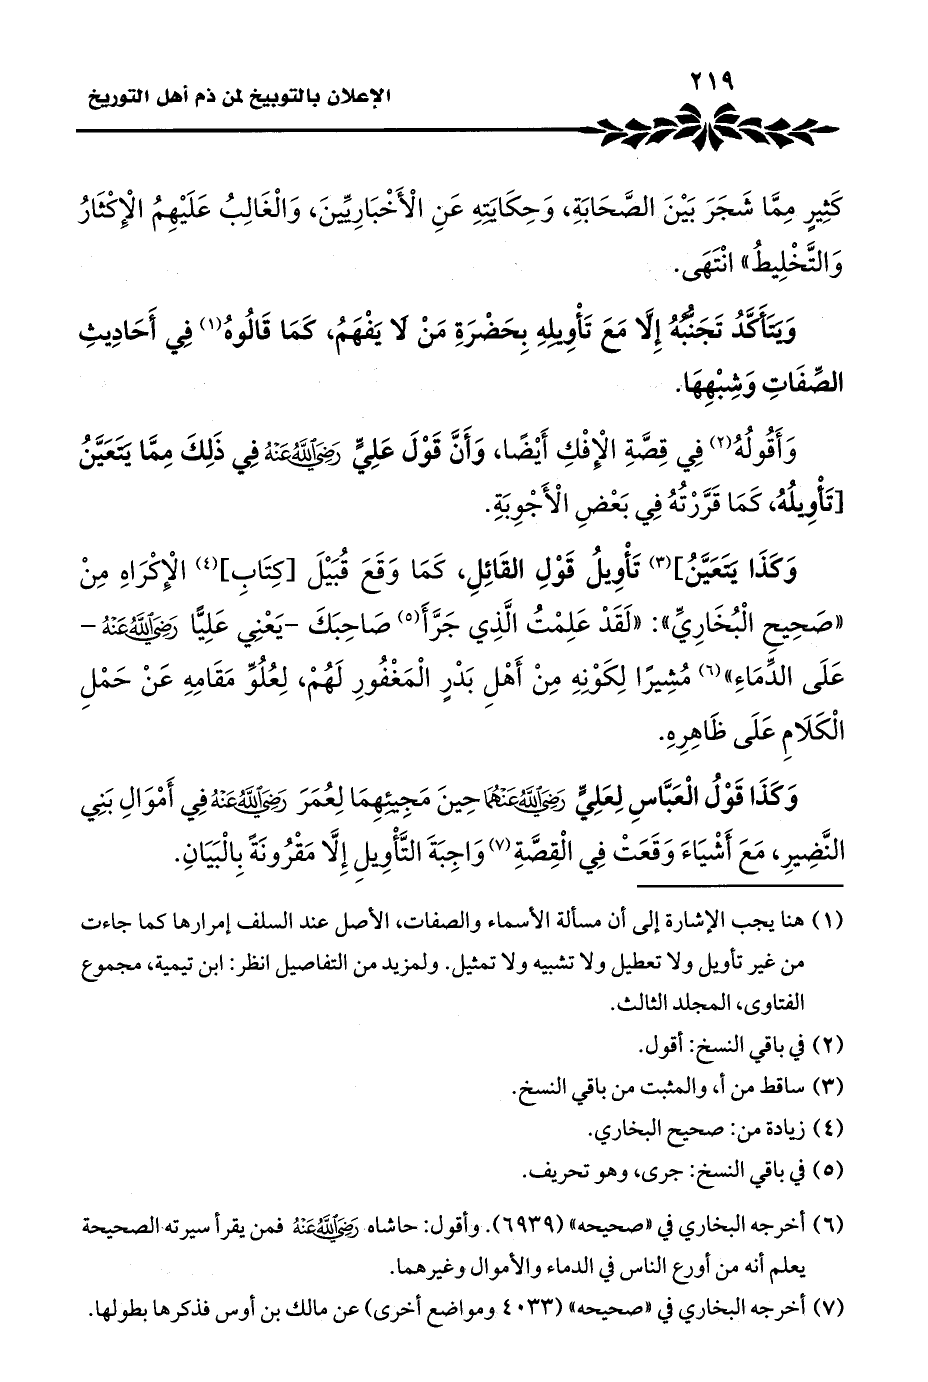 ٢١٩
الإعلان بالتوبيخ لمن ذم أهل التوريخ
كَثِيرٍ مِمَّا شَجَرَ بَيْنَ الصَّحَابَةِ، وَحِكَايَتِهِ عَنِ الْأَخْبَارِيِّينَ، وَالْغَالِبُ عَلَيْهِمُ الْإِكْثَارُ
وَالتَّخْلِيطُ» انْتَهَى.
وَيَتَأَكَّدُ تَجَنُّبُهُ إِلَّا مَعَ تَأْوِيلِهِ بِحَضْرَةِ مَنْ لَا يَفْهَمُ، كَمَا قَالُوهُ(١) فِي أَحَادِيثِ
الصِّفَاتِ وَشِبْهِهَا.
وَأَقُولُهُ(٢) فِي قِصَّةِ الْإِفْكِ أَيْضًا، وَأَنَّ قَوْلَ عَلِيٍّ رَضِيَاللَّهُعَنْهُ فِي ذَلِكَ مِمَّا يَتَعَيَّنُ
[تَأْوِيلُهُ، كَمَا قَرَّرْتُهُ فِي بَعْضِ الْأَجْوِبَةِ.
وَكَذَا يَتَعَيَّنُ](٣) تَأْوِيلُ قَوْلِ القَائِلِ، كَمَا وَقَعَ قُبَيْلَ [كِتَابِ](٤) الْإِكْرَاهِ مِنْ
«صَحِيحِ الْبُخَارِيِّ»: «لَقَدْ عَلِمْتُ الَّذِي جَرَّأَ(٥) صَاحِبَكَ -يَعْنِي عَلِيًّا رَضِيَاللَّهُعَنْهُ-
عَلَى الدِّمَاءِ»(٦) مُشِيرًا لِكَوْنِهِ مِنْ أَهْلِ بَدْرٍ الْمَغْفُورِ لَهُمْ، لِعُلُوِّ مَقَامِهِ عَنْ حَمْلِ
الْكَلَامِ عَلَى ظَاهِرِهِ.
وَكَذَا قَوْلُ الْعَبَّاسِ لِعَلِيٍّ رَضِيَاللَّهُعَنْهُمَا حِينَ مَجِيئِهِمَا لِعُمَرَ رَضِيَاللَّهُعَنْهُ فِي أَمْوَالِ بَنِي
النَّضِيرِ، مَعَ أَشْيَاءَ وَقَعَتْ فِي الْقِصَّةِ(٧) وَاجِبَةَ التَّأْوِيلِ إِلَّا مَقْرُونَةً بِالْبَيَانِ.
(١) هنا يجب الإشارة إلى أن مسألة الأسماء والصفات، الأصل عند السلف إمرارها كما جاءت
من غير تأويل ولا تعطيل ولا تشبيه ولا تمثيل. ولمزيد من التفاصيل انظر: ابن تيمية، مجموع
الفتاوى، المجلد الثالث.
(٢) في باقي النسخ: أقول.
(٣) ساقط من أ، والمثبت من باقي النسخ.
(٤) زيادة من: صحيح البخاري.
(٥) في باقي النسخ: جرى، وهو تحريف.
(٦) أخرجه البخاري في «صحيحه» (٦٩٣٩). وأقول: حاشاه رَضِيَاللَّهُعَنْهُ فمن يقرأ سيرته الصحيحة
يعلم أنه من أورع الناس في الدماء والأموال وغيرهما.
(٧) أخرجه البخاري في «صحيحه» (٤٠٣٣ ومواضع أخرى) عن مالك بن أوس فذكرها بطولها.